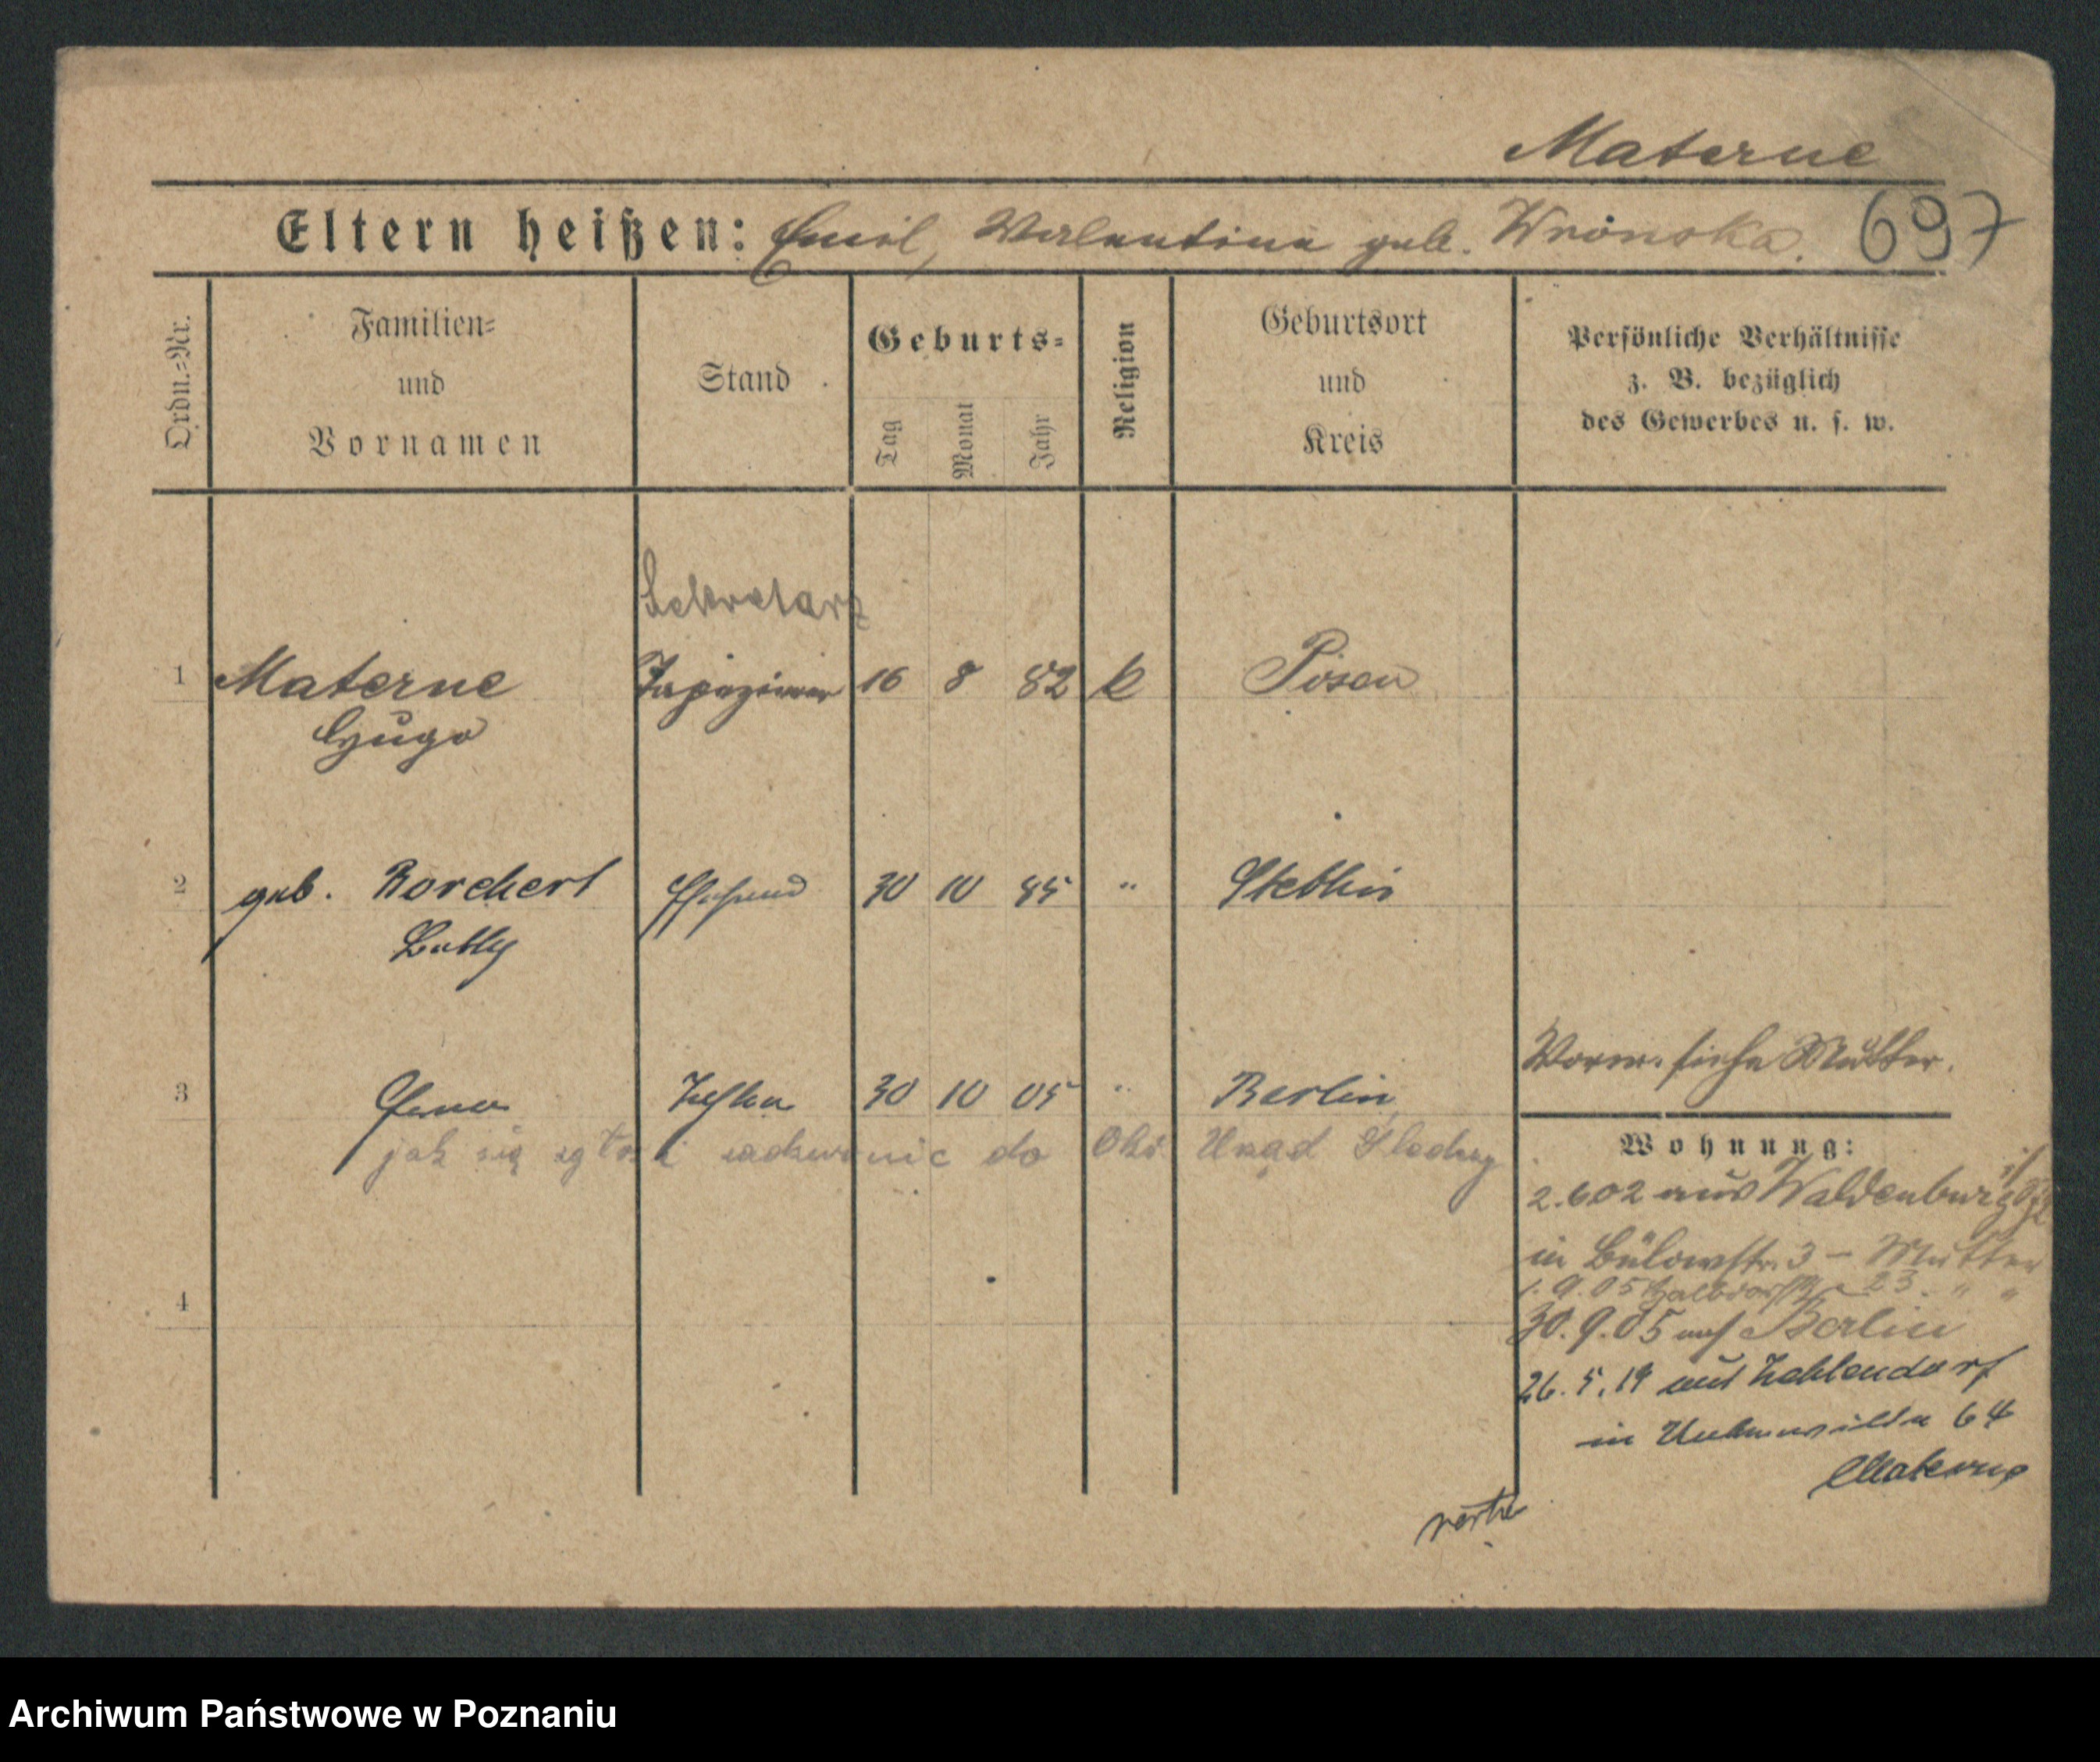 Materne
Eltern heißen: Emil, Valentina geb. Wrónska. 697
Ordn.=Nr.
Familien=
und
Vornamen
Stand
Geburts=
Tag
Monat
Jahr
Religion
Geburtsort
und
Kreis
Persönliche Verhältnisse
z. B. bezüglich
des Gewerbes u. s. w.
Sekretarz
1 Materne Tapezierer 16 8 82 k Posen
Hugo
2 geb. Borchert Ehefrau 30 10 85 " Stettin
3 Tochter 30 10 05 " Berlin
Vorm. siehe Mutter.
jak się zgłosi do Okr. Urząd
Wohnung:
2.6.02 aus Waldenburg
in Bülowstr. 3 – Mutter
1.9.05 23. " "
30.9.05 auf Berlin
26.5.19 aus Zehlendorf
in 64
Materne
verte
4
Archiwum Państwowe w Poznaniu